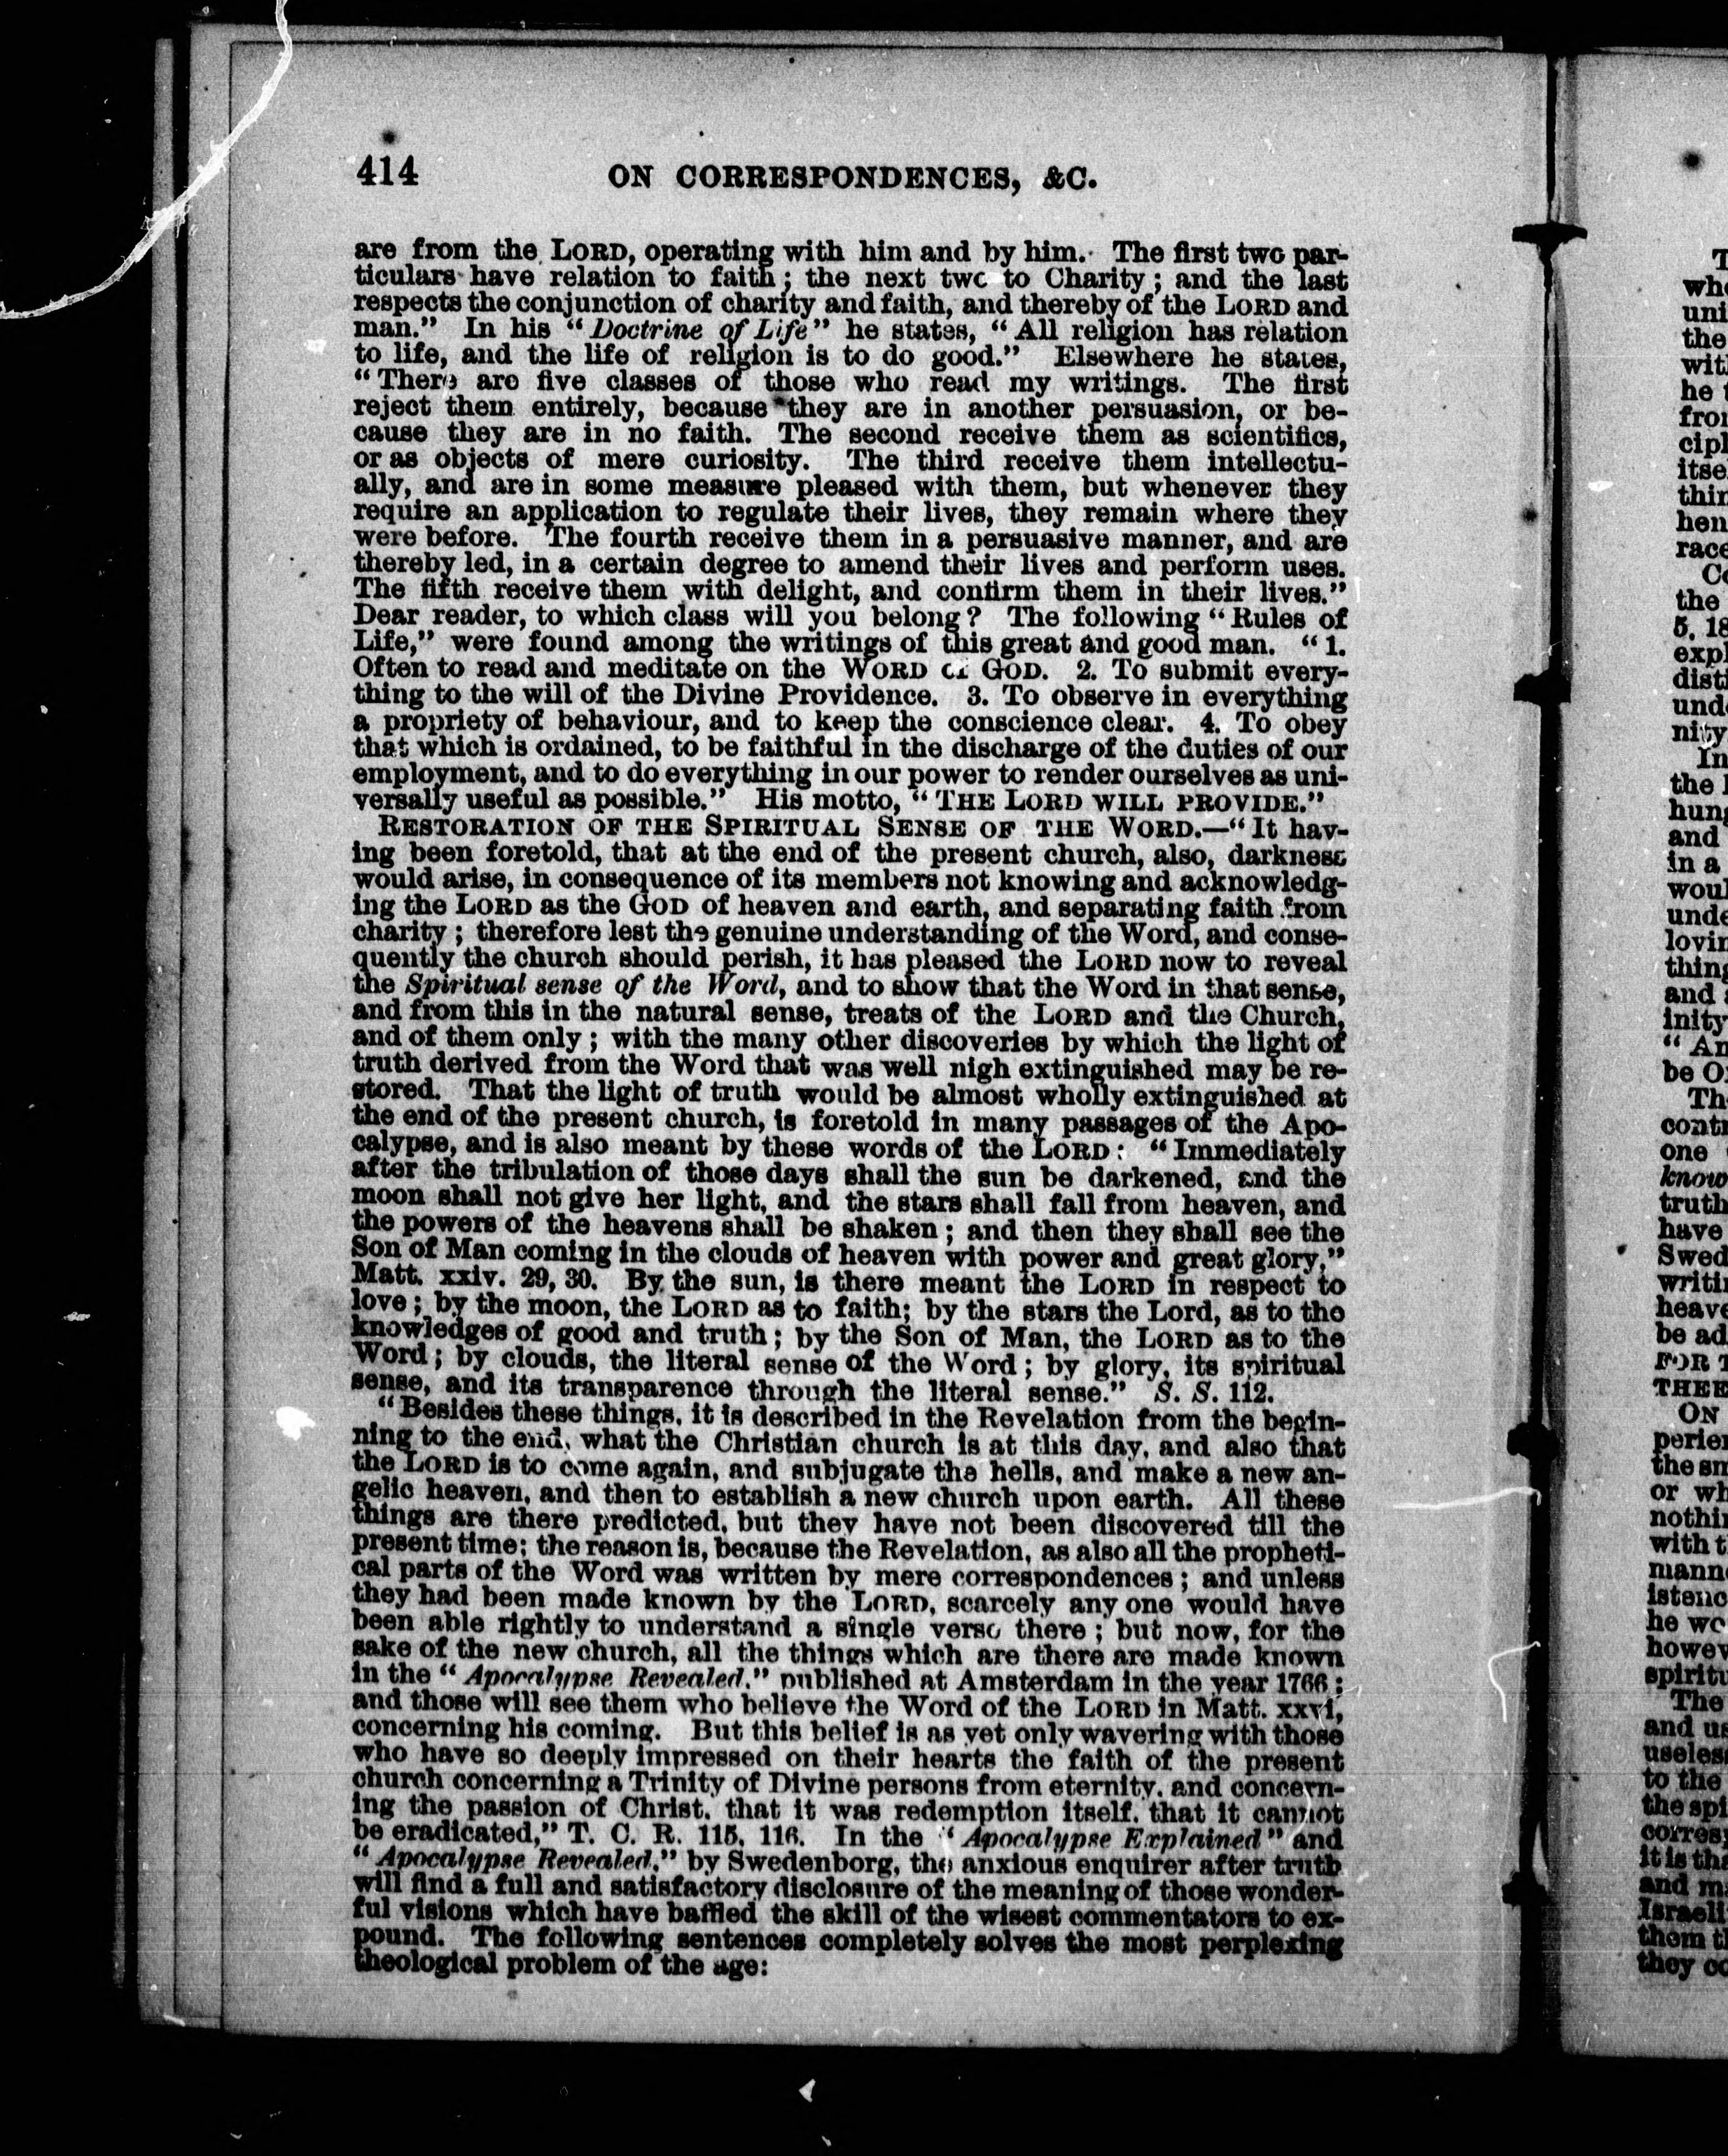 414 ON CORRESPONDENCES, &C.
are from the LORD, operating with him and by him. The first two par-
ticulars have relation to faith; the next two to Charity; and the last
respects the conjunction of charity and faith, and thereby of the LORD and
man." In his "Doctrine of Life" he states, "All religion has relation
to life, and the life of religion is to do good." Elsewhere he states,
"There are five classes of those who read my writings. The first
reject them entirely, because they are in another persuasion, or be-
cause they are in no faith. The second receive them as scientifics,
or as objects of mere curiosity. The third receive them intellectu-
ally, and are in some measure pleased with them, but whenever they
require an application to regulate their lives, they remain where they
were before. The fourth receive them in a persuasive manner, and are
thereby led, in a certain degree to amend their lives and perform uses.
The fifth receive them with delight, and confirm them in their lives."
Dear reader, to which class will you belong? The following "Rules of
Life," were found among the writings of this great and good man. "1.
Often to read and meditate on the WORD of GOD. 2. To submit every-
thing to the will of the Divine Providence. 3. To observe in everything
a propriety of behaviour, and to keep the conscience clear. 4. To obey
that which is ordained, to be faithful in the discharge of the duties of our
employment, and to do everything in our power to render ourselves as uni-
versally useful as possible." His motto, "THE LORD WILL PROVIDE."
RESTORATION OF THE SPIRITUAL SENSE OF THE WORD.—"It hav-
ing been foretold, that at the end of the present church, also, darkness
would arise, in consequence of its members not knowing and acknowledg-
ing the LORD as the GOD of heaven and earth, and separating faith from
charity; therefore lest the genuine understanding of the Word, and conse-
quently the church should perish, it has pleased the LORD now to reveal
the Spiritual sense of the Word, and to show that the Word in that sense,
and from this in the natural sense, treats of the LORD and the Church,
and of them only; with the many other discoveries by which the light of
truth derived from the Word that was well nigh extinguished may be re-
stored. That the light of truth would be almost wholly extinguished at
the end of the present church, is foretold in many passages of the Apo-
calypse, and is also meant by these words of the LORD: "Immediately
after the tribulation of those days shall the sun be darkened, and the
moon shall not give her light, and the stars shall fall from heaven, and
the powers of the heavens shall be shaken; and then they shall see the
Son of Man coming in the clouds of heaven with power and great glory,"
Matt. xxiv. 29, 30. By the sun, is there meant the LORD in respect to
love; by the moon, the LORD as to faith; by the stars the Lord, as to the
knowledges of good and truth; by the Son of Man, the LORD as to the
Word; by clouds, the literal sense of the Word; by glory, its spiritual
sense, and its transparence through the literal sense." S. S. 112.
"Besides these things, it is described in the Revelation from the begin-
ning to the end, what the Christian church is at this day, and also that
the LORD is to come again, and subjugate the hells, and make a new an-
gelic heaven, and then to establish a new church upon earth. All these
things are there predicted, but they have not been discovered till the
present time; the reason is, because the Revelation, as also all the propheti-
cal parts of the Word was written by mere correspondences; and unless
they had been made known by the LORD, scarcely any one would have
been able rightly to understand a single verse there; but now, for the
sake of the new church, all the things which are there are made known
in the "Apocalypse Revealed," published at Amsterdam in the year 1766;
and those will see them who believe the Word of the LORD in Matt. xxvi,
concerning his coming. But this belief is as yet only wavering with those
who have so deeply impressed on their hearts the faith of the present
church concerning a Trinity of Divine persons from eternity, and concern-
ing the passion of Christ, that it was redemption itself, that it cannot
be eradicated," T. C. R. 115, 116. In the "Apocalypse Explained" and
"Apocalypse Revealed," by Swedenborg, the anxious enquirer after truth
will find a full and satisfactory disclosure of the meaning of those wonder-
ful visions which have baffled the skill of the wisest commentators to ex-
pound. The following sentences completely solves the most perplexing
theological problem of the age: